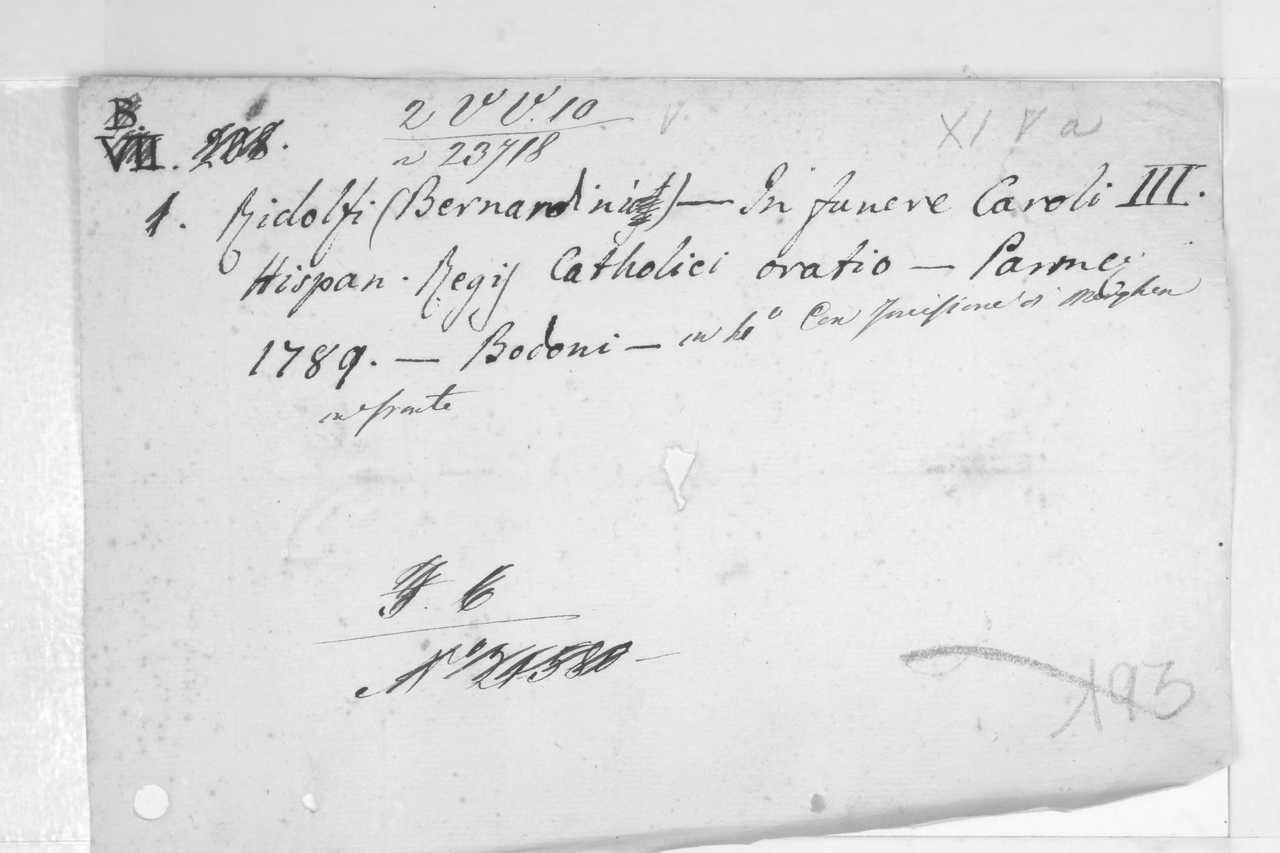 B.
VII. 208.
2 V V. 10
n 23718
V.
XI V a
1. Ridolfi (Bernardini) — In funere Caroli III.
Hispan. Regis Catholici oratio — Parme
1789. — Bodoni — in 4º Con Incisione di Morghen
in fronte
6
Nº 24580
193